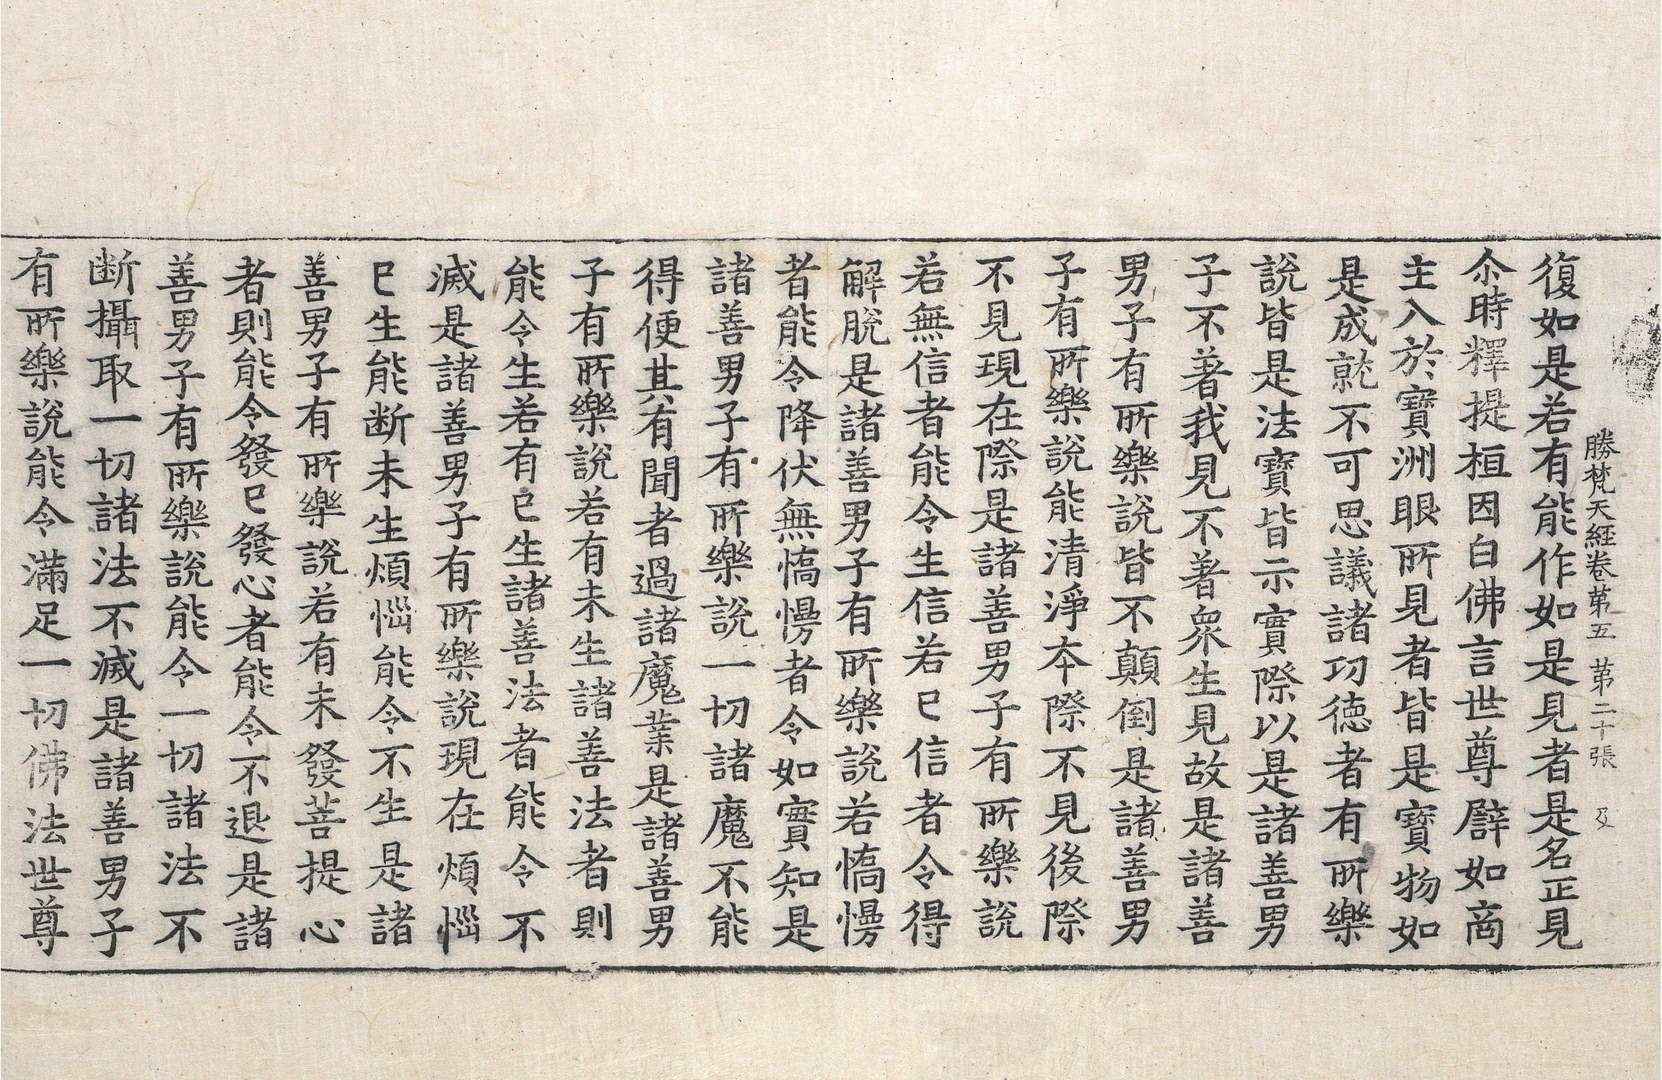 勝梵天經卷第五　第二十張　及
復如是若有能作如是見者是名正見
尒時釋提桓因白佛言世尊譬如商
主入於寶洲眼所見者皆是寶物如
是成就不可思議諸功德者有所樂
說皆是法寶皆示實際以是諸善男
子不著我見不著衆生見故是諸善
男子有所樂說皆不顛倒是諸善男
子有所樂說能清淨本際不見後際
不見現在際是諸善男子有所樂說
若無信者能令生信若已信者令得
解脫是諸善男子有所樂說若憍慢
者能令降伏無憍慢者令如實知是
諸善男子有所樂說一切諸魔不能
得便其有聞者過諸魔業是諸善男
子有所樂說若有未生諸善法者則
能令生若有已生諸善法者能令不
滅是諸善男子有所樂說現在煩惱
已生能断未生煩惱能令不生是諸
善男子有所樂說若有未發菩提心
者則能令發已發心者能令不退是諸
善男子有所樂說能令一切諸法不
断攝取一切諸法不滅是諸善男子
有所樂說能令滿足一切佛法世尊